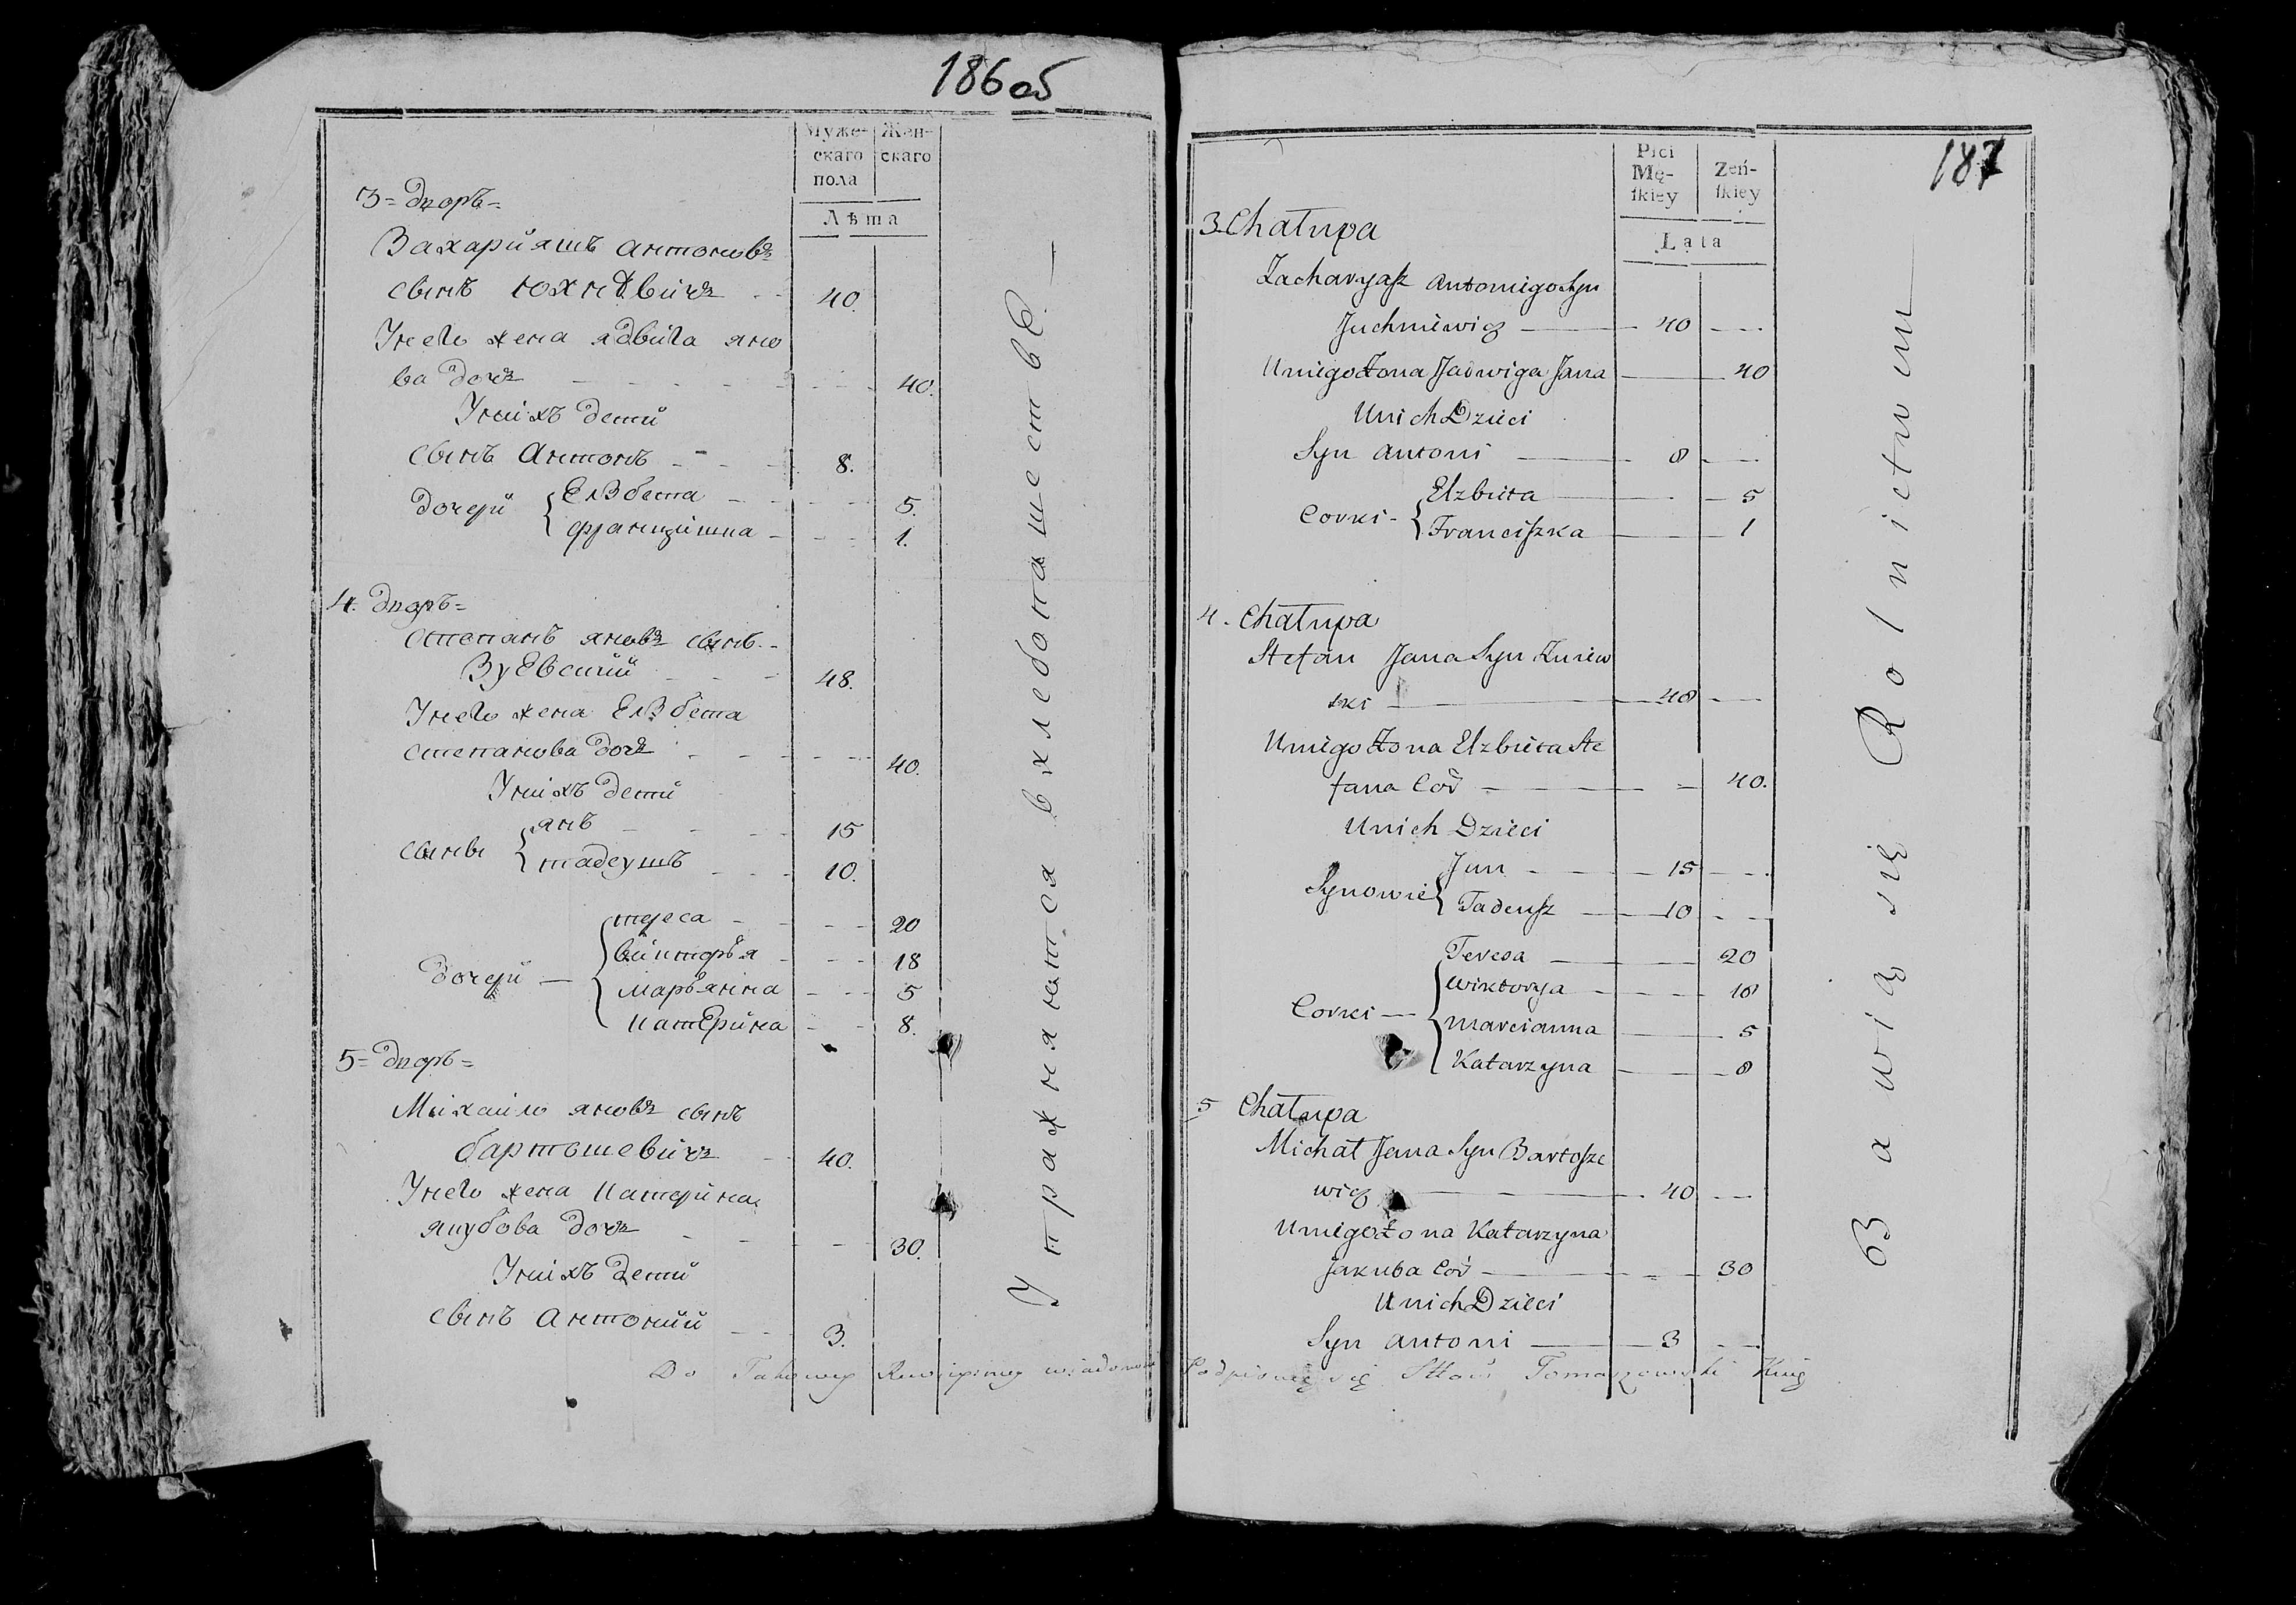 186 об
Муже-
скаго
пола
Жен-
скаго
Лѣта
3= дворъ=
Захарйяшъ антоновъ
сынъ Юхнѣвичъ 40.
Унего жена ядвига яно
ва дочъ 40.
Унихъ дети
сынъ Антонъ 8.
дочери
Елзбета 5.
францишка 1.
4. дворъ=
Степанъ яновъ сынъ
Зуевский 48.
Унего жена Елзбета
степанова дочъ 40.
Унихъ дети
сынви
янъ 15
тадеушъ 10.
дочери
тереса 20
викторъя 18
маръянна 5
катерина 8.
5= дворъ=
Михайло яновъ сынъ
бартошевичъ 40.
Унего жена катерина
якубова дочъ 30.
Унихъ дети
сынъ антоний 3.
Упражняются в хлебопашестве
Do Takowey wiadomości Podpisuię się Tomaszowski
187
Płci
Mę-
ſkiey
Żeń-
ſkiey
Lata
3 Chałupa
Zacharyaſz Antoniego Syn
Juchniewicz 40
Uniego Żona Jadwiga Jana 40
Unich Dzieci
Syn Antoni 8
Corki
Elzbieta 5
Franciſzka 1
4. Chałupa
Stefan Jana Syn Zuiew
ski 48
Uniego Żona Elzbieta Ste
fana Cor 40.
Unich Dzieci
Synowie
Jan 15
Tadeuſz 10
Corki
Teresa 20
Wiktorya 18
Marcianna 5
Katarzyna 8
5 Chałupa
Michał Jana Syn Bartoſze
wicz 40
Uniego Żona Katarzyna
Jakuba Cor 30
Unich Dzieci
Syn Antoni 3
Bawią się Rolnictwem